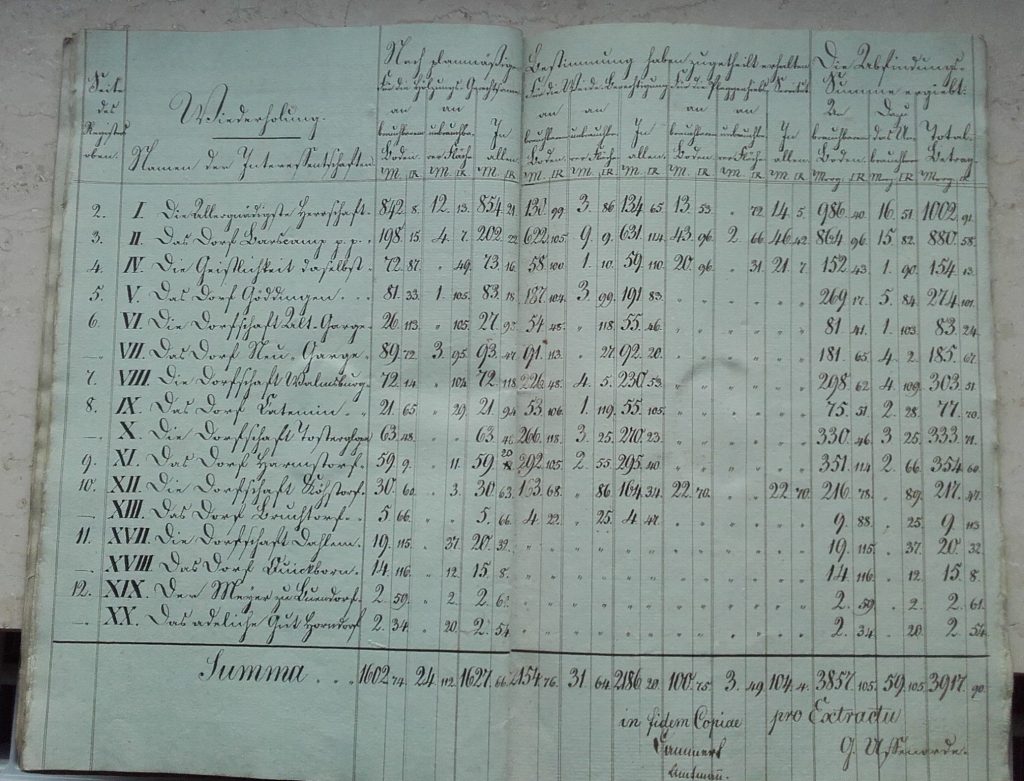 Seite des Registers oben.
Wiederholung.
Namen der Interessentschaften
Nach planmäßiger Bestimmung haben zugetheilt erhalten
Die Abfindungs-Summe ergiebt:
für die Hölzungs-Gerechtsame für die Weide-Berechtigung für die Plaggenhieb
an brauchbaren Boden. an unbrauchbarer Fläche In allen. an brauchbaren Boden. an unbrauchbarer Fläche In allen. an brauchbaren Boden. an unbrauchbarer Fläche In allen. An brauchbaren Boden. Dazu des Unbrauchbaren Total-Betrag.
2. I. Die Allergnädigste Herrschaft. 842. 8. 12. 13. 854. 21 130. 99. 3. 86. 134. 65. 13. 53. " 72. 14. 5. 986. 40. 16. 51. 1002. 91.
3. II. Das Dorf Barscamp p.p. 198. 15. 4. 7. 202. 22. 622. 105. 9. 9. 631. 114. 43. 96. 2. 66. 46. 42. 864. 96. 15. 82. 880. 58.
4. IV. Die Geistlichkeit daselbst 72. 87. " 49. 73. 16. 58. 100. 1. 10. 59. 110. 20. 96. " 31. 21. 7. 152. 43. 1. 90. 154. 13.
5. V. Das Dorf Göddingen. 81. 33. 1. 105. 83. 18. 187. 104. 3. 99. 191. 83. " " " " " " 269. 17. 5. 84. 274. 101.
6. VI. Die Dorfschaft Alt-Garge 26. 113. " 105. 27. 98. 54. 48. " 118. 55. 46. " " " " " " 81. 41. 1. 103. 83. 24.
—. VII. Das Dorf Neu-Garge 89. 72. 3. 95. 93. 47. 91. 113. " 27. 92. 20. " " " " " " 181. 65. 4. 2. 185. 67.
7. VIII. Die Dorfschaft Walmsburg. 72. 14. " 104. 72. 118. 226. 48. 4. 5. 230. 53. " " " " " " 298. 62. 4. 109. 303. 51.
8. IX. Das Dorf Katemin. 21. 65. " 29. 21. 94. 53. 106. 1. 119. 55. 105. " " " " " " 75. 51. 2. 28. 77. 79.
—. X. Die Dorfschaft Tosterglope 63. 48. " " 63. 48. 266. 118. 3. 25. 270. 23. " " " " " " 330. 46. 3. 25. 333. 71.
9. XI. Das Dorf Harmstorf. 59. 9. " 11. 59. 20 292. 105. 2. 55. 295. 40. " " " " " " 351. 114. 2. 66. 354. 60.
10. XII. Die Dorfschaft Köhstorf. 30. 60. " 3. 30. 63. 163. 68. " 86. 164. 34. 22. 70. " " 22. 70. 216. 78. " 89. 217. 47.
—. XIII. Das Dorf Bruchtorf. 5. 66. " " 5. 66. 4. 22. " 25. 4. 47. " " " " " " 9. 88. " 25. 9. 113.
11. XVII. Die Dorfschaft Dahlem. 19. 115. " 37. 20. 32. " " " " " " " " " " " " 19. 115. " 37. 20. 32.
—. XVIII. Das Dorf Quickborn. 14. 116. " 12. 15. 8. " " " " " " " " " " " " 14. 116. " 12. 15. 8.
12. XIX. Der Meyer zu Buendorf. 2. 59. " 2. 2. 61. " " " " " " " " " " " " 2. 59. " 2. 2. 61.
—. XX. Das adeliche Gut Horndorf 2. 34. " 20. 2. 54. " " " " " " " " " " " " 2. 34. " 20. 2. 54.
Summa 1602. 74. 24. 112. 1627. 66. 2154. 76. 31. 64. 2186. 20. 100. 75. 3. 49. 104. 4. 3857. 105. 59. 105. 3917. 90.
in fidem Copiae pro Extractu
Amtmann.